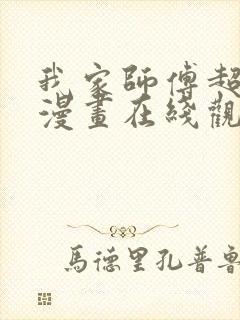 我家師傅超
漫畫在綫觀
馬德里孔普魯